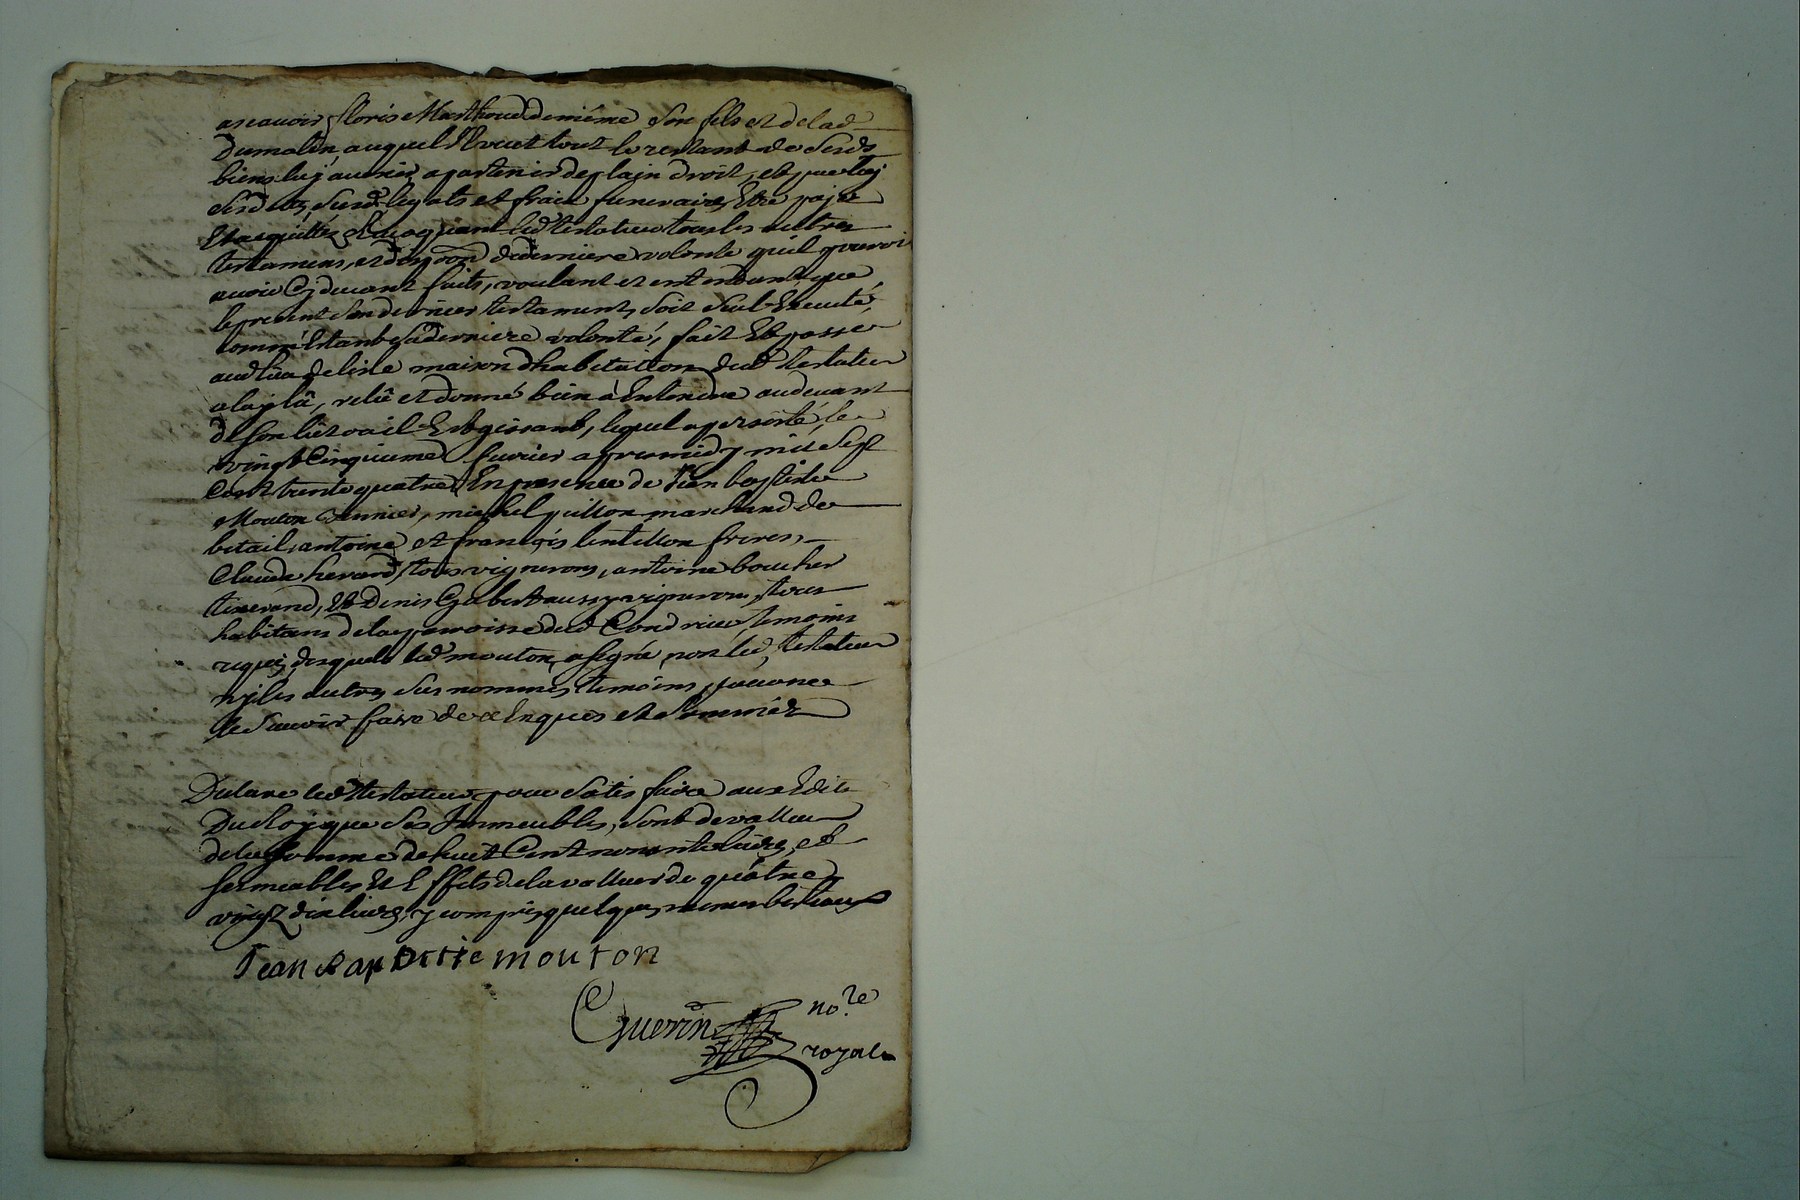 ascavoir floris Marthoud demême son fils et de lad
Dumolin, auquel Il veut tout le restant de sesds
biens luy auenir apartenir de plain droit, et que luy
sesdits, susd. legats et frais funeraires Etre paijé
Et acquittés Reuoquant led testateur tous les autres
testamens, et dispoon de derniere volonte quil pouroit
auoir Cy deuant faits, voulant et entendant que
le present son dernier testament, soit seul Executé,
comme Estant sa derniere volonté, fait Et passé
aud lieu de lisle maison dhabitation dud testateur
a luy lû, relû et donné bien a Entendre audeuant
de son lit ou il Est gissant, lequel a persisté, le
vingt Cinquieme feurier apres midy mil sept
Cent trente quatre En presence de Jean baptiste
Mouton, michel guillon marchand de
betail, antoine et francois lentillon freres,
Claude herard, tous vignerons, antoine boucher
tixerand, Et Denis Gabert aussy vigneron, tous
habitans de la parroisse dud Condrieu temoins
requis, desquels led mouton a signé, non led, testateur
ny les autres sus nommes temoins, pour ne
le Scauoir faire de ce Enquis et Sommés
Declare led testateur, pour Satisfaire aux Edits
Du Roy que Ses Immeubles, Sont de valleur
de la somme de huit Cent nonante liures, et
ses meubles Et Effets de la valleur de quatre
vingt dix liures, y compris quelques menus bestiaux
Jean Baptiste mouton
Guerin no.re
royal